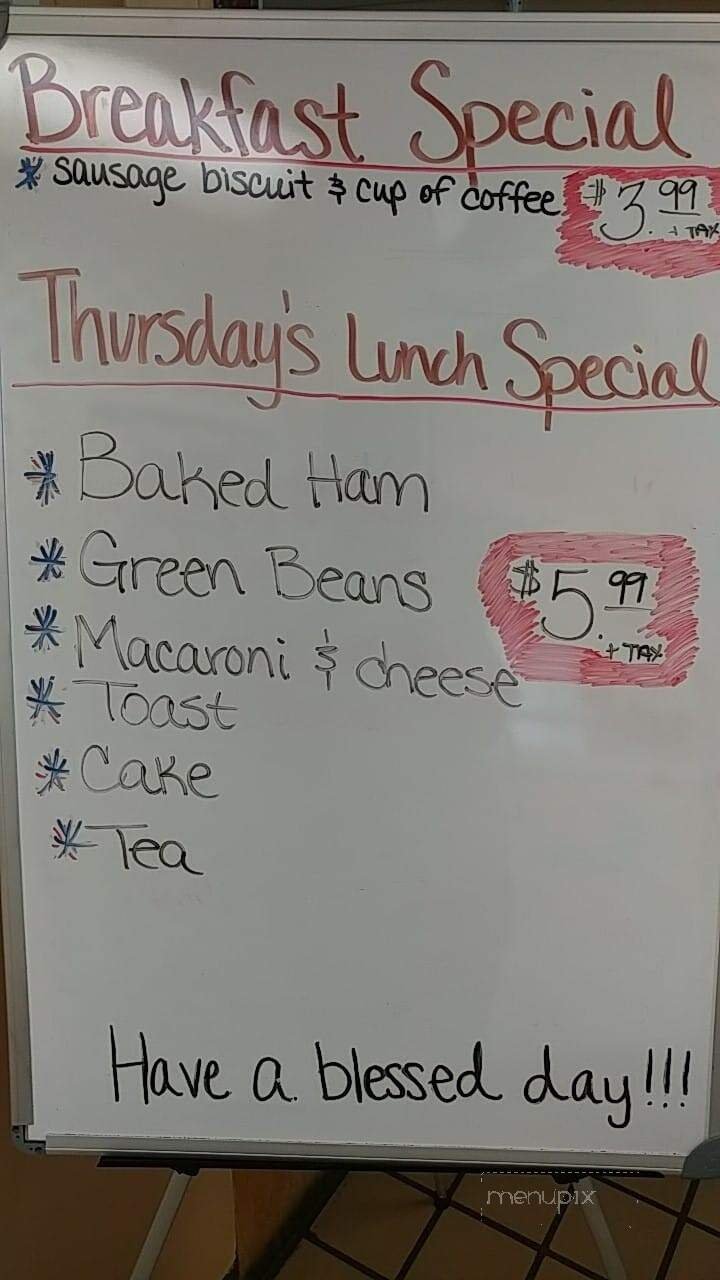 Breakfast Special
* sausage biscuit & cup of coffee $3.99
+ TAX
Thursday's Lunch Special
* Baked Ham
* Green Beans
$5.99
+ TAX
* Macaroni & cheese
* Toast
* Cake
* Tea
Have a blessed day!!!
menupix